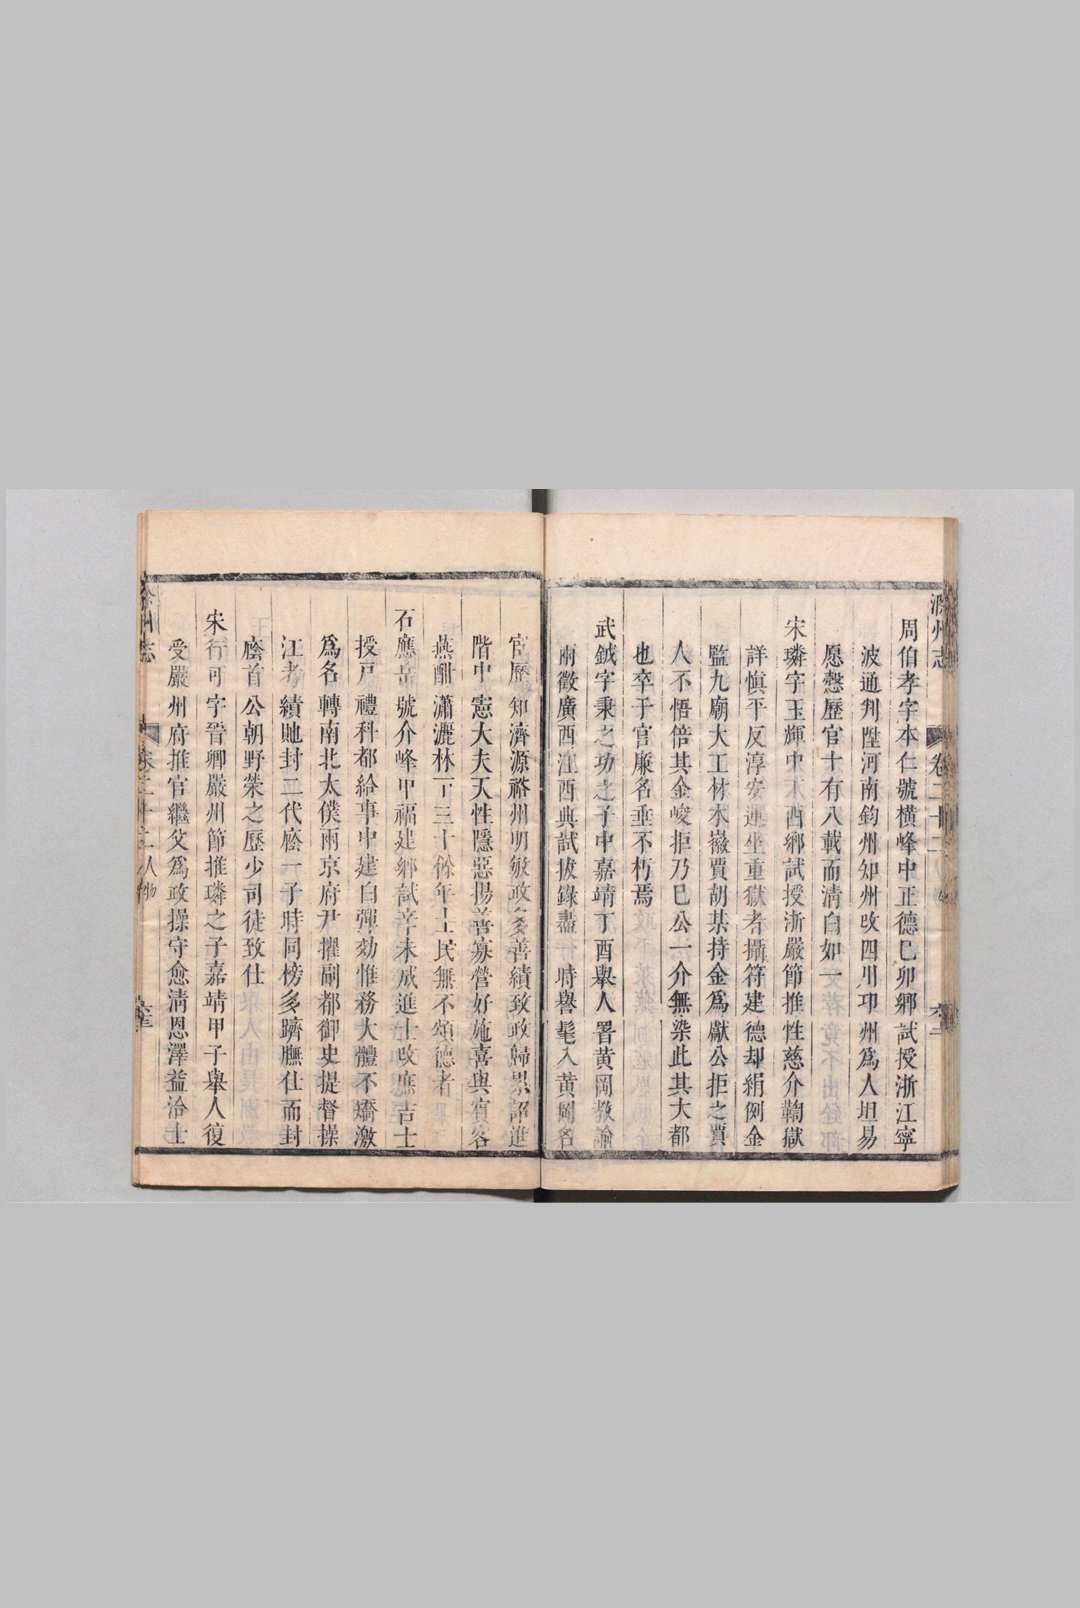 州志
卷二十二
周伯孝字本仁號橫峰中正德己卯鄉試授浙江寧
波通判陞河南鈞州知州攺四川卭州爲人坦易
愿慤歷官十有八載而清白如一
宋璘字玉輝中 酉鄉試授浙嚴節推性慈介鞫獄
詳愼平反淳安連坐重獄者攝符建德却絹例金
監九廟大工材木徽賈胡某持金爲獻公拒之賈
人不悟倍其金峻拒乃已公一介無染此其大都
也卒于官廉名垂不朽焉
武鉞字秉之功之子中嘉靖丁酉舉人署黄岡敎諭
兩徵廣西江西典試拔錄盡 時譽髦入黄岡名
官歷知濟源裕州明敏政多善績致政歸累 進
階中憲大夫天性隱惡揚善寡營好施喜與賓客
燕酣瀟灑林下三十餘年士民無不頌德者
石應岳號介峰甲福建鄉試辛未成進士改庶吉士
授戸禮科都給事中建白彈劾惟務大體不矯激
爲名轉南北太僕兩京府尹擢副都御史提督操
江考績貤封二代廕一子時同榜多躋膴仕而封
廕首公朝野榮之歷少司徒致仕
宋行可字晉卿嚴州節推璘之子嘉靖甲子舉人復
受嚴州府推官繼父爲政操守愈清恩澤益洽士
州志
人物